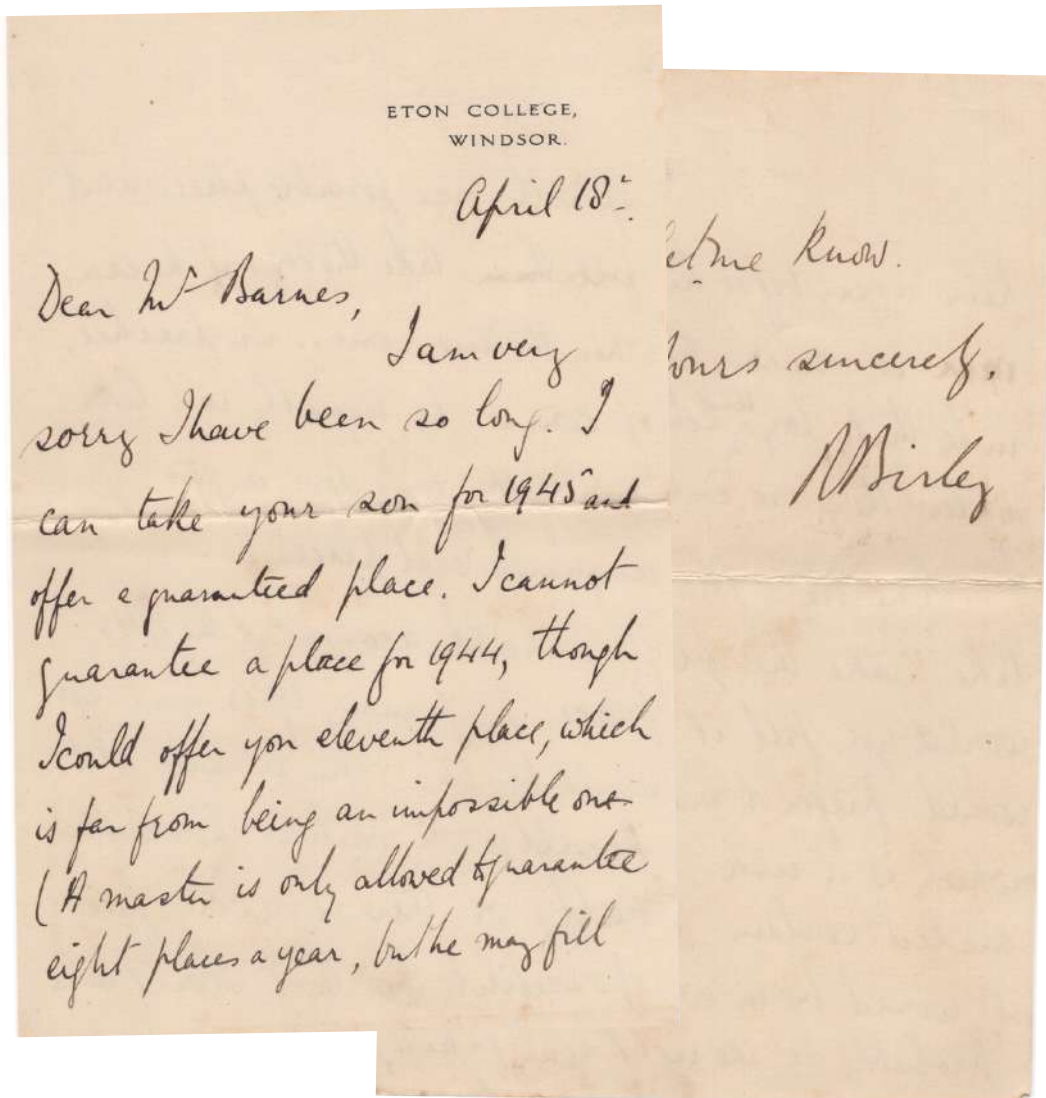 ETON COLLEGE,
WINDSOR.
April 18th.
Dear Mr Barnes,
I am very
sorry I have been so long. I
can take your son for 1945 and
offer a guaranteed place. I cannot
guarantee a place for 1944, though
I could offer you eleventh place, which
is far from being an impossible one.
(A master is only allowed to guarantee
eight places a year, but he may fill
let me know.
Yours sincerely.
R Birley